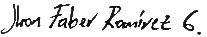 Jhon Faber Ramirez G.